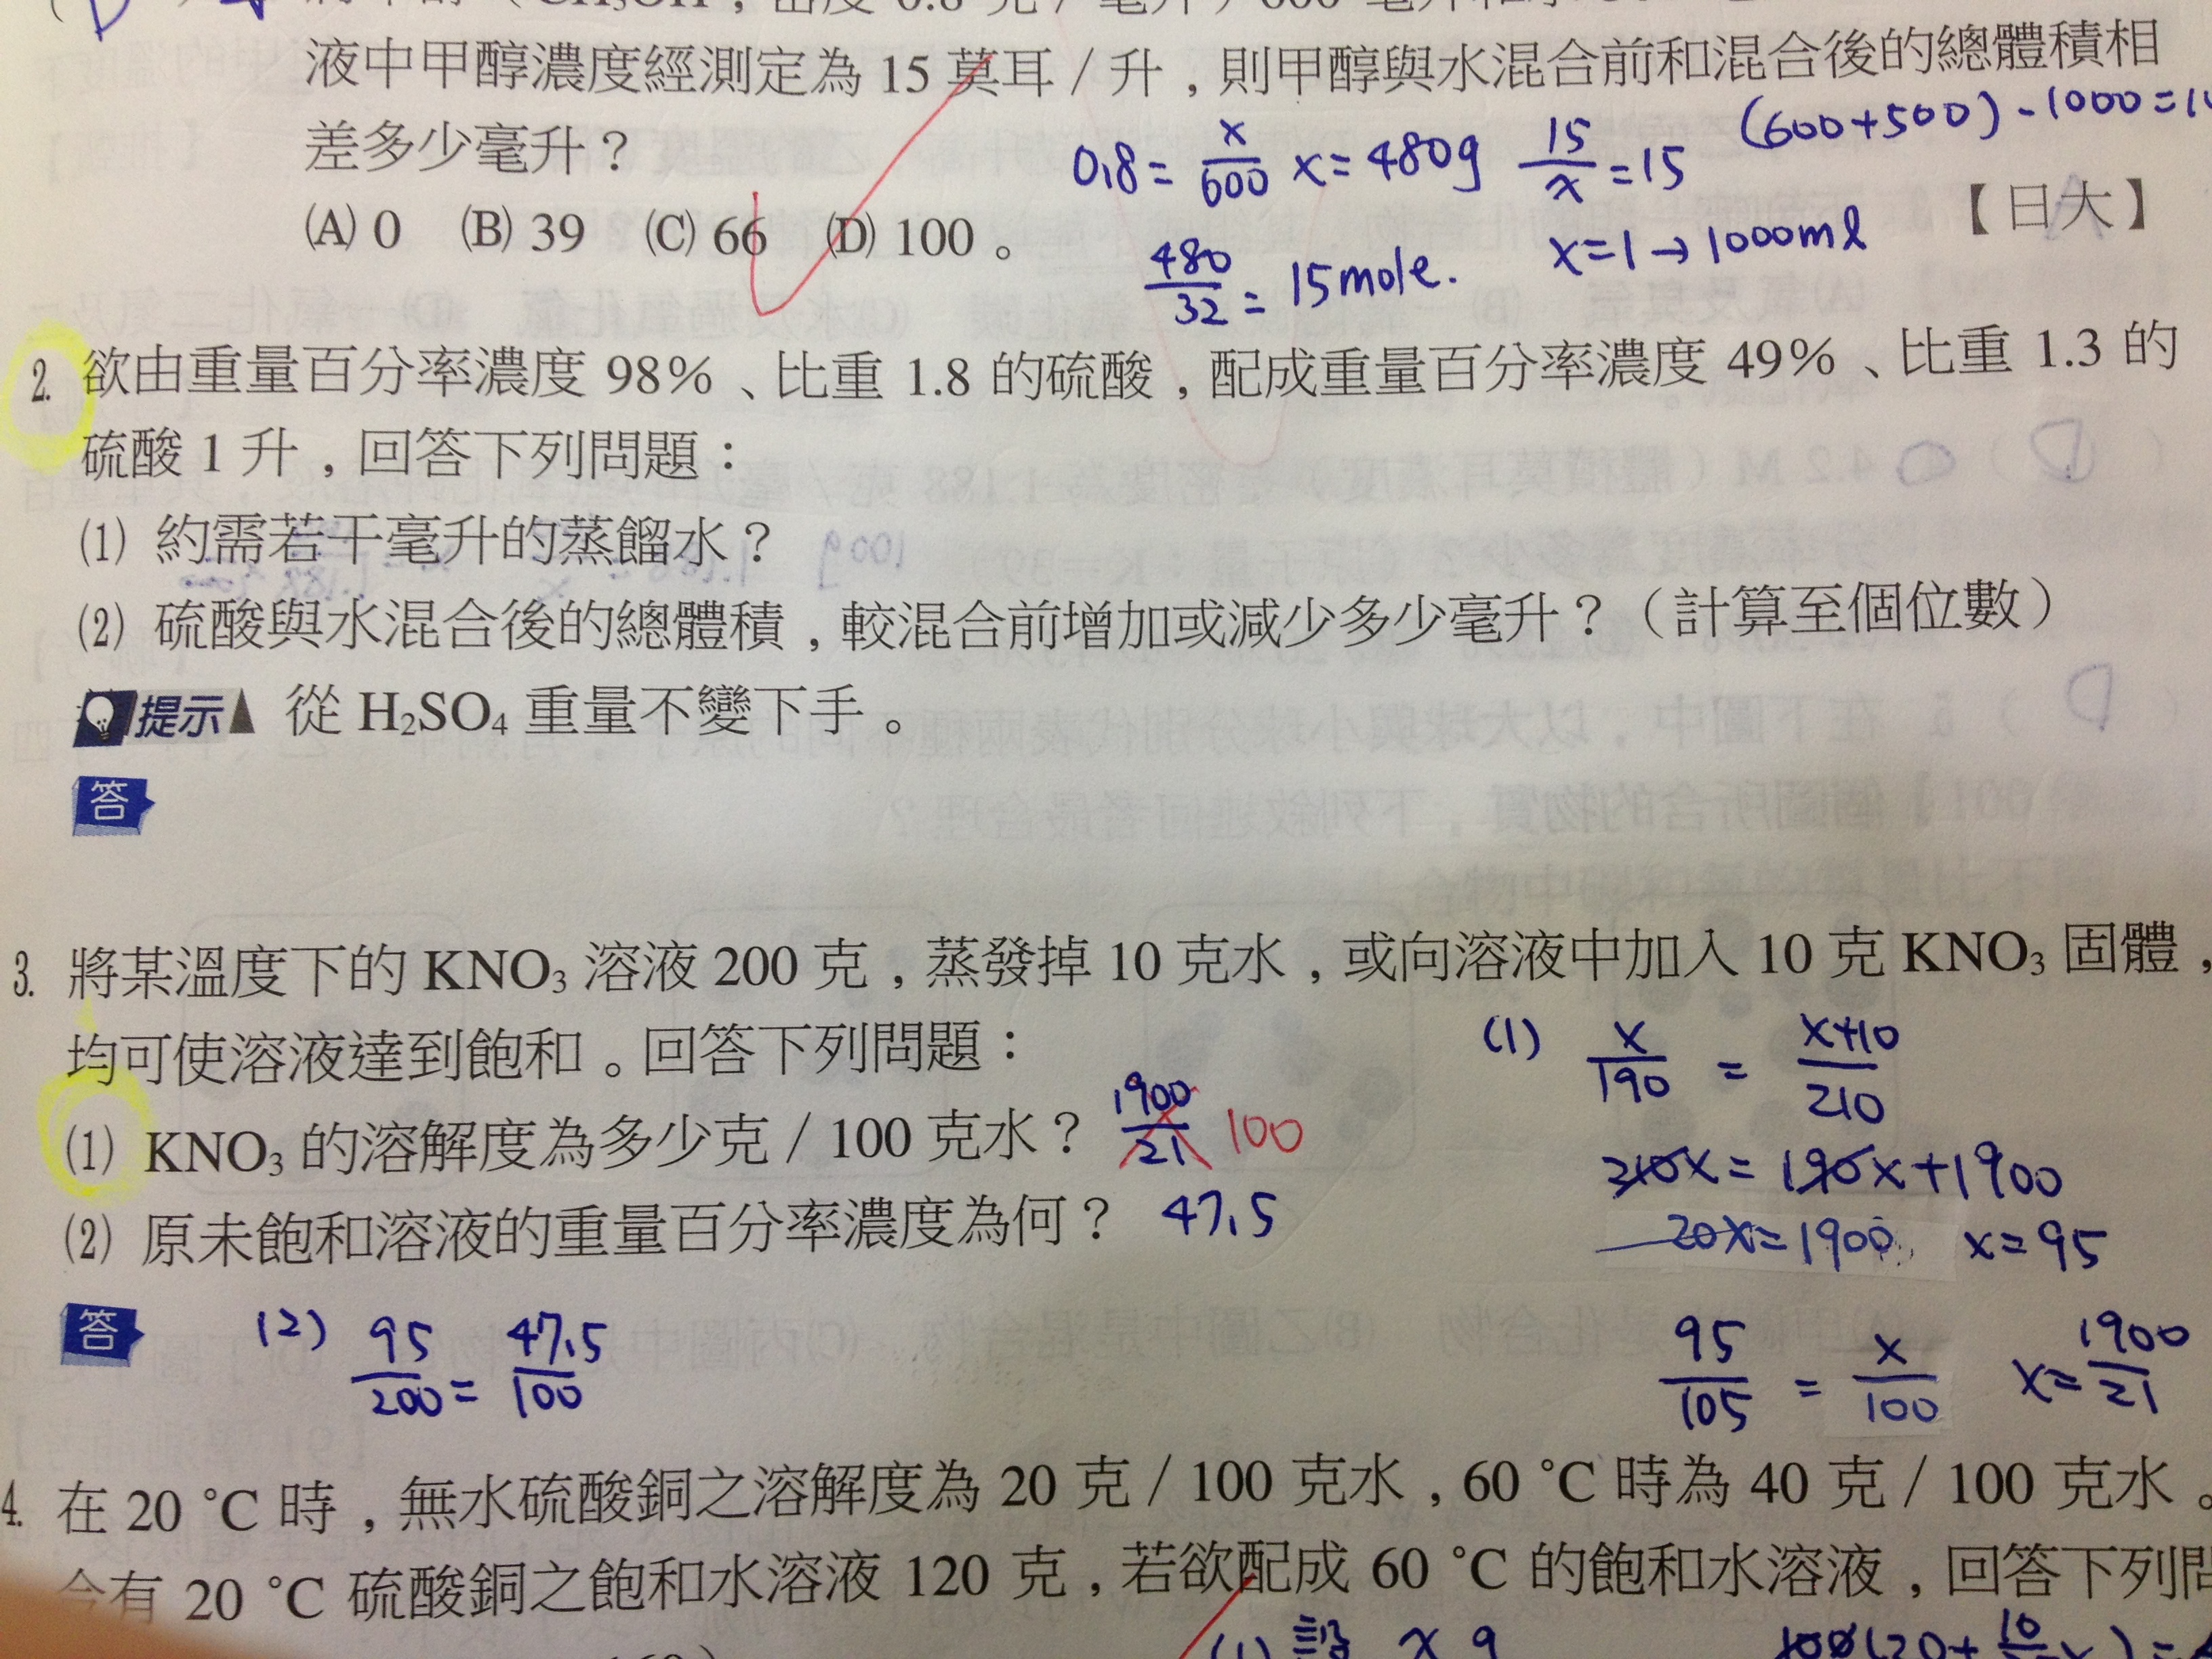 液中甲醇濃度經測定為 15 莫耳／升，則甲醇與水混合前和混合後的總體積相
(600+500)-1000=1
差多少毫升？
0.8= x/600 x=480g 15/x =15
【日大】
(A) 0 (B) 39 (C) 66 (D) 100 。
480/32 = 15mole. x=1→1000ml
2. 欲由重量百分率濃度 98% 、比重 1.8 的硫酸，配成重量百分率濃度 49% 、比重 1.3 的
硫酸 1 升，回答下列問題：
(1) 約需若干毫升的蒸餾水？
(2) 硫酸與水混合後的總體積，較混合前增加或減少多少毫升？（計算至個位數）
提示 從 H₂SO₄ 重量不變下手。
答
3. 將某溫度下的 KNO₃ 溶液 200 克，蒸發掉 10 克水，或向溶液中加入 10 克 KNO₃ 固體，
均可使溶液達到飽和。回答下列問題：
(1) x/190 = x+10/210
(1) KNO₃ 的溶解度為多少克／100 克水？ 1900/21 100
210x=190x+1900
(2) 原未飽和溶液的重量百分率濃度為何？ 47.5
20x=1900 x=95
答 (2) 95/200 = 47.5/100
95/105 = x/100 x= 1900/21
4. 在 20 ℃ 時，無水硫酸銅之溶解度為 20 克／100 克水，60 ℃ 時為 40 克／100 克水。
今有 20 ℃ 硫酸銅之飽和水溶液 120 克，若欲配成 60 ℃ 的飽和水溶液，回答下列問
(1) 設 x g